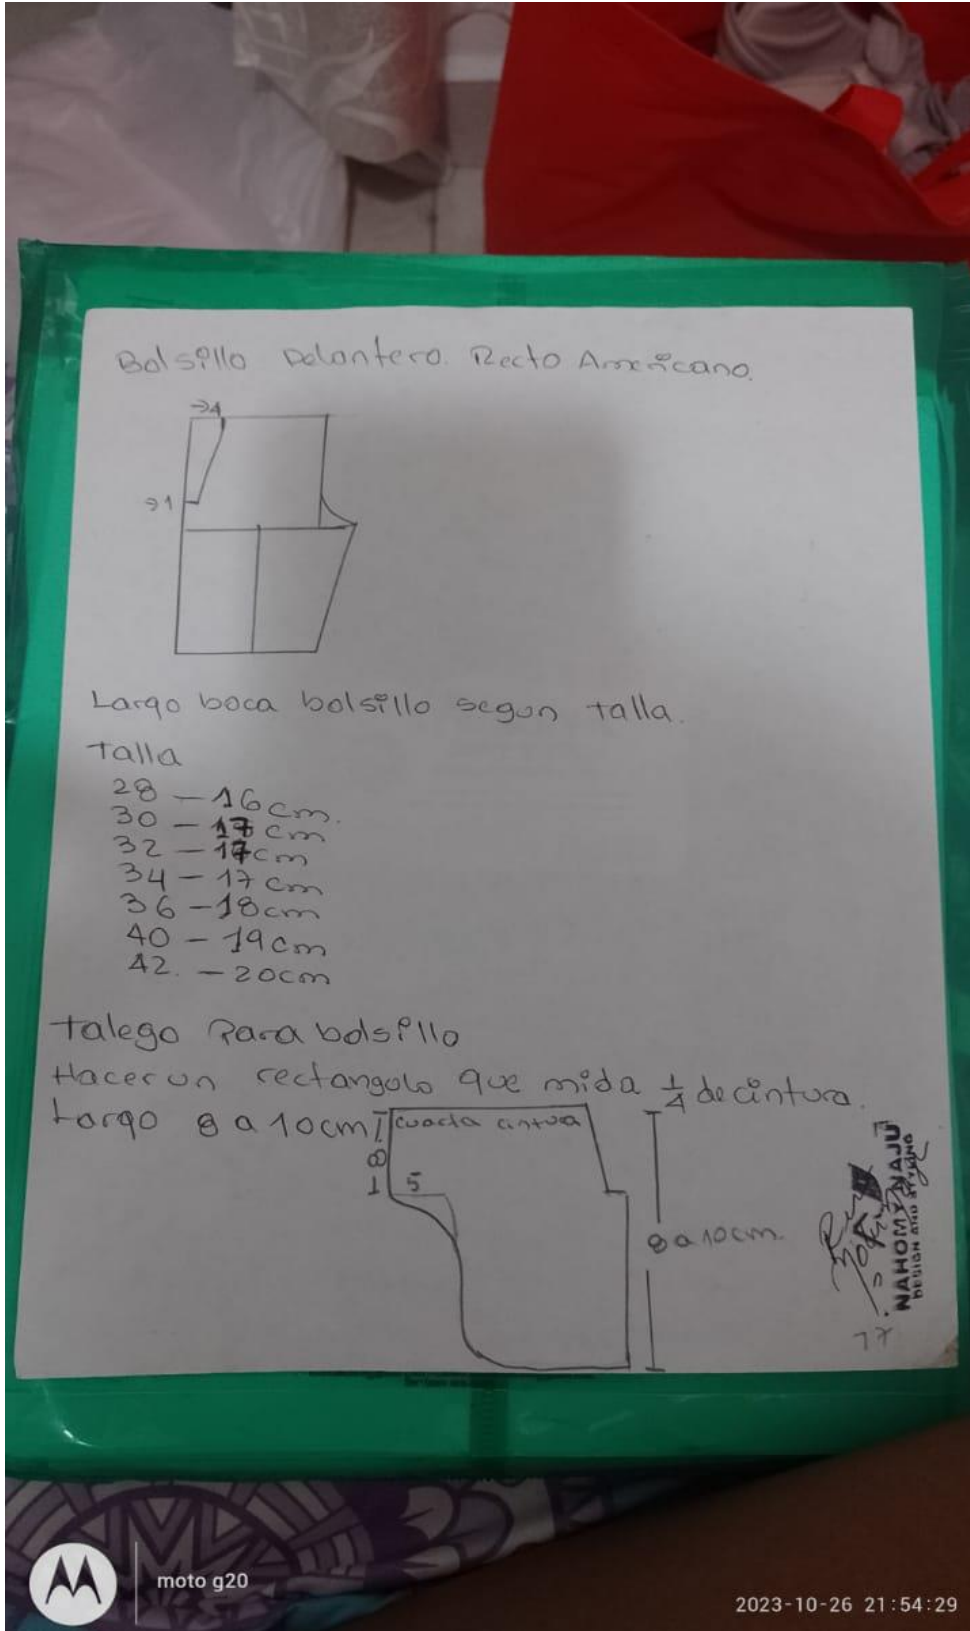 Bolsillo Delantero. Recto Americano.
→4
→1
Largo boca bolsillo segun talla.
Talla
28 - 16cm.
30 - 17cm
32 - 17cm
34 - 17cm
36 - 18cm
40 - 19cm
42. - 20cm
Talego Para bolsillo
Hacer un rectangolo que mida 1/4 de cintura.
Largo 8 a 10cm
cuarta cintura
8
5
8 a 10cm.
NAHOMY NAJU
DESIGN AND STYLING
17
moto g20
2023-10-26 21:54:29